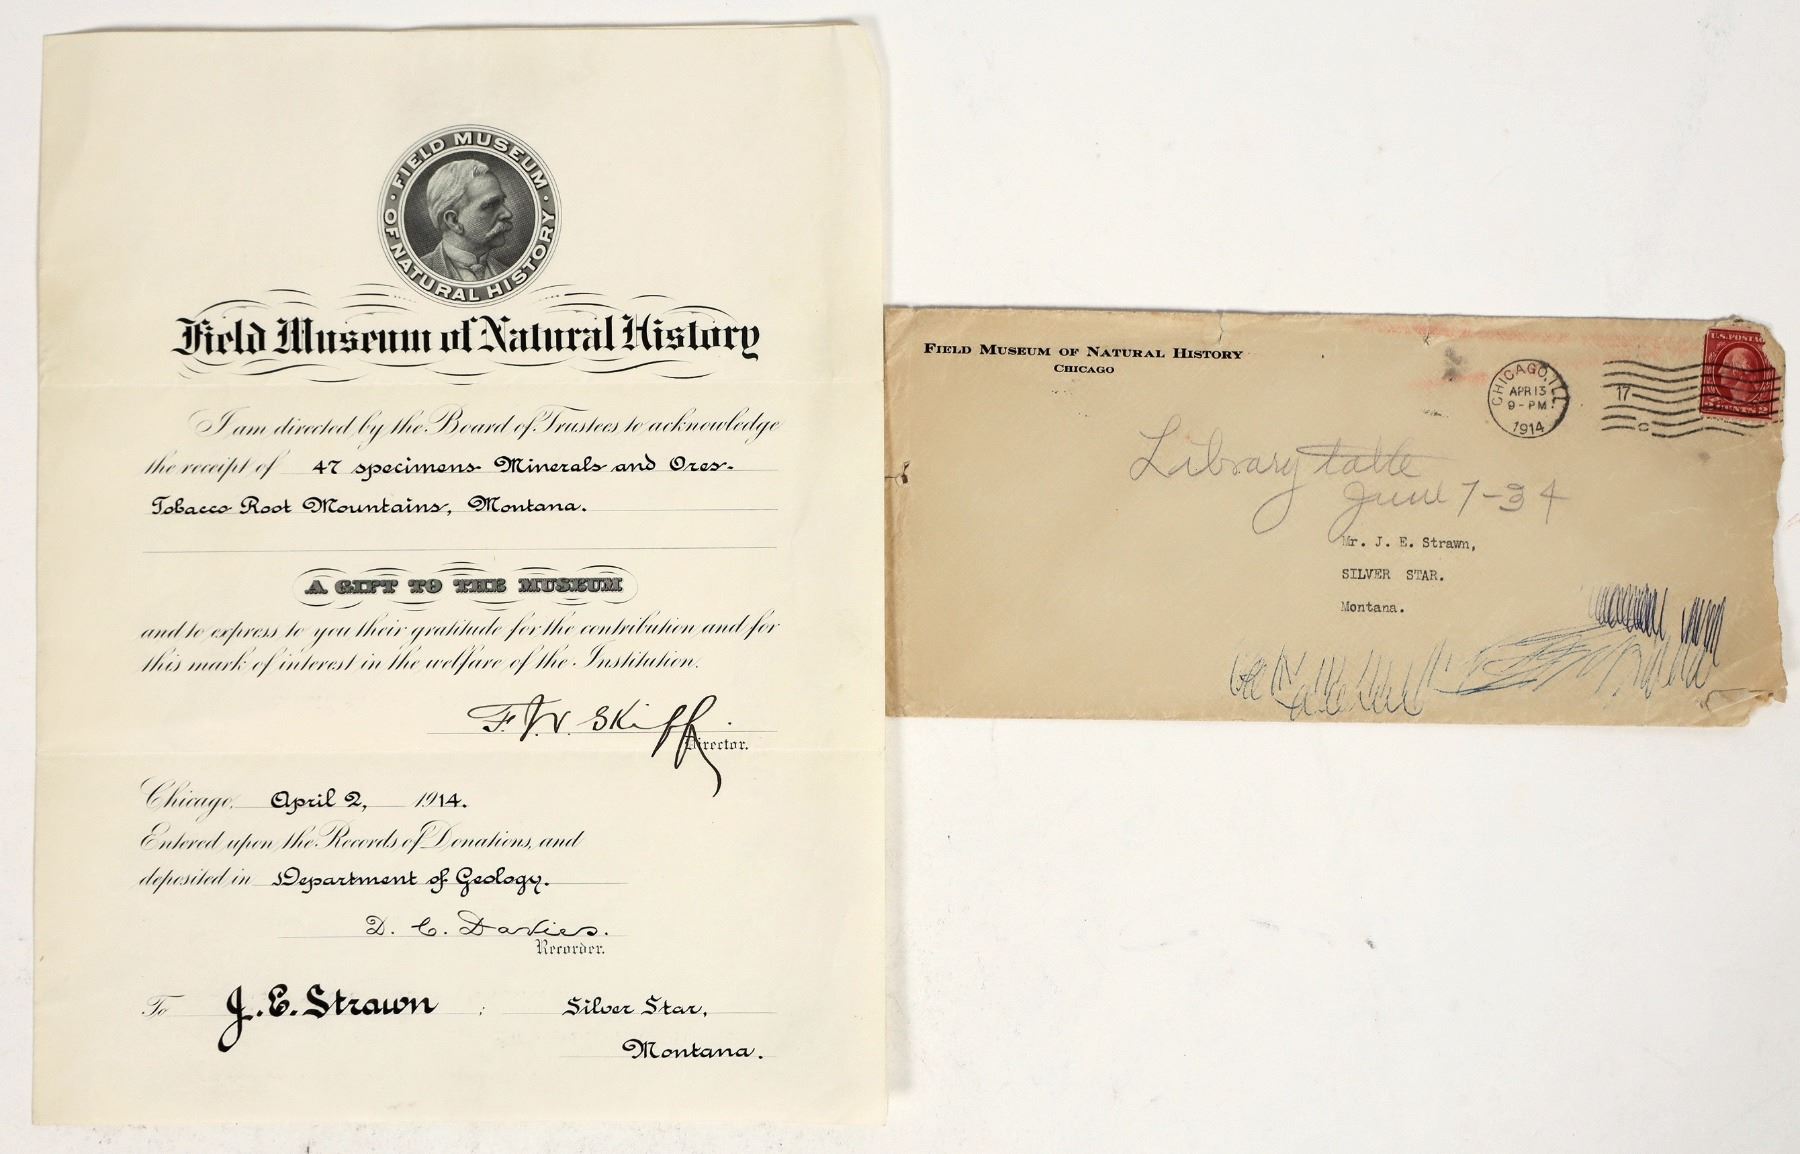 FIELD MUSEUM OF NATURAL HISTORY
Field Museum of Natural History
I am directed by the Board of Trustees to acknowledge
the receipt of 47 specimens Minerals and Ores-
Tobacco Root Mountains, Montana.
A GIFT TO THE MUSEUM
and to express to you their gratitude for the contribution, and for
this mark of interest in the welfare of the Institution.
F. J. V. Skiff.
Director.
Chicago, April 2, 1914.
Entered upon the Records of Donations, and
deposited in Department of Geology.
D. C. Davies.
Recorder.
To J. E. Strawn ; Silver Star,
Montana.
FIELD MUSEUM OF NATURAL HISTORY
CHICAGO
CHICAGO, ILL.
APR 13
9-PM
1914
17
C
U.S. POSTAG
2 CENTS 2
Library table
June 7-34
Mr. J. E. Strawn,
SILVER STAR.
Montana.